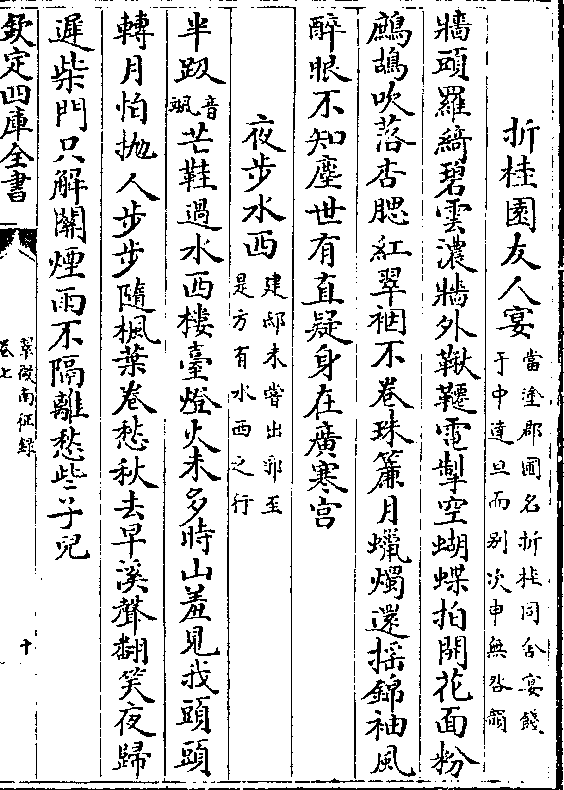 折桂園友人宴
當塗郡圃名折桂同舍宴餞
于中達旦而别次申無咎韻
牆頭羅綺碧雲濃牆外鞦韆電掣空蝴蝶拍開花面粉
鷓鴣吹落杏腮紅翠裀不卷珠簾月蠟燭還摇錦袖風
醉眼不知塵世有直疑身在廣寒宫
夜步水西
建邸未嘗出郭至
是方有水西之行
半趿音颯芒鞋過水西樓臺燈火未多時山羞見我頭頭
轉月怕抛人步步隨楓葉卷愁秋去早溪聲翻笑夜歸
遲柴門只解關煙雨不隔離愁些子兒
欽定四庫全書
翠微南征録
卷七
十